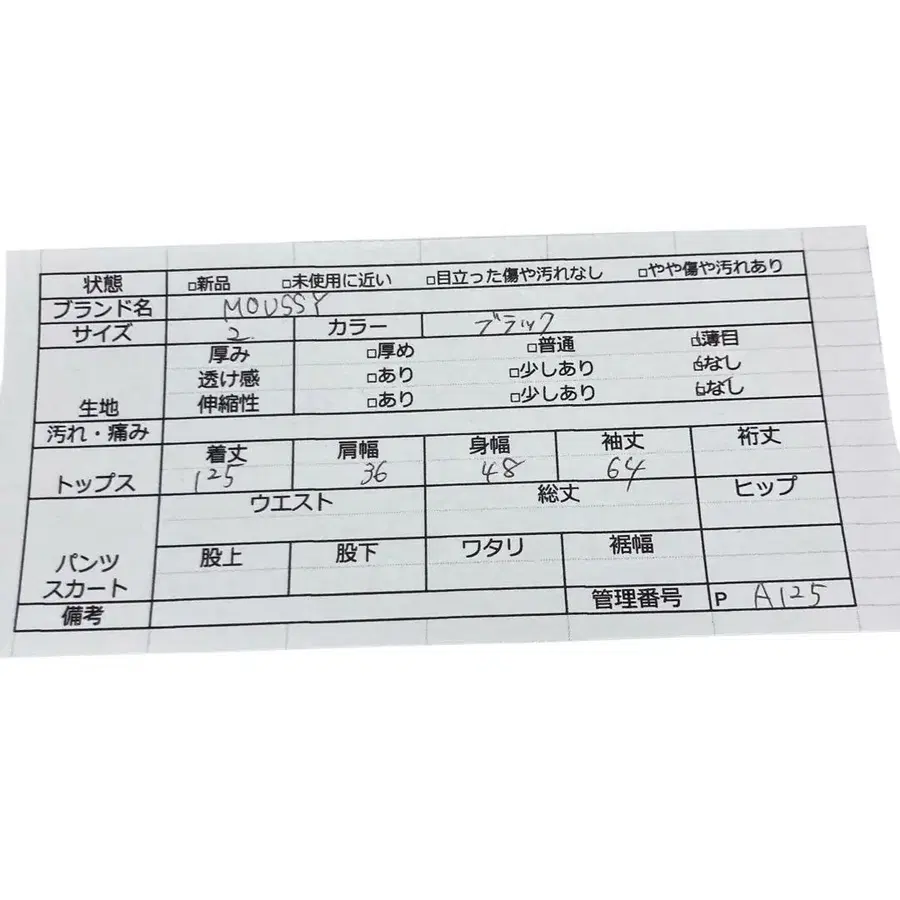 状態 □新品 □未使用に近い □目立った傷や汚れなし □やや傷や汚れあり
ブランド名 MOUSSY
サイズ 2 カラー ブラック
厚み □厚め □普通 □薄目
透け感 □あり □少しあり □なし
生地 伸縮性 □あり □少しあり □なし
汚れ・痛み
着丈 肩幅 身幅 袖丈 裄丈
トップス 125 36 48 64
ウエスト 総丈 ヒップ
股上 股下 ワタリ 裾幅
パンツ
スカート
備考 管理番号 P A125